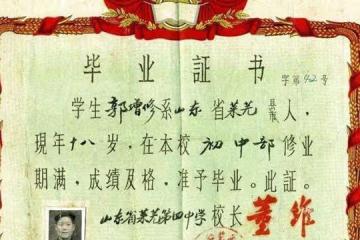 毕业証书
字第92号
学生郭增修系山东省莱芜县市人，
現年十八岁，在本校初中部修业
期满，成绩及格，准予毕业。此証。
山东省莱芜第四中学校长董维